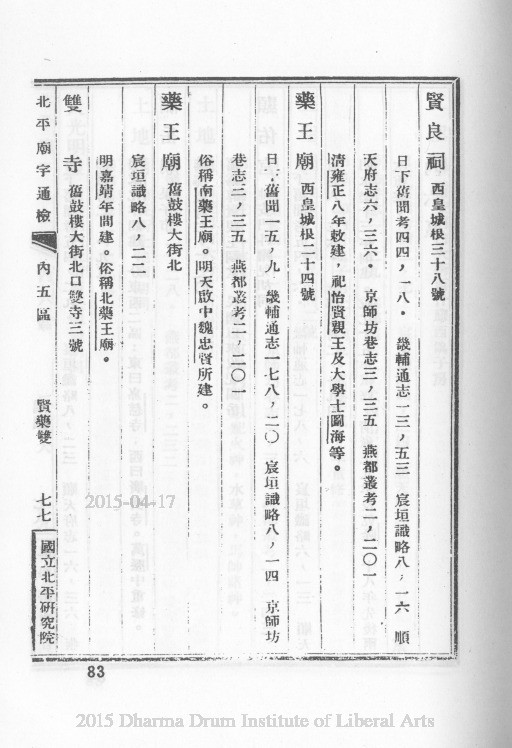 賢良祠 西皇城根三十八號
日下舊聞考四四，一八． 畿輔通志一三，五三 宸垣識略八，一六 順
天府志六，三六． 京師坊巷志三，三五 燕都叢考二，二〇一
清雍正八年敕建，祀怡賢親王及大學士圖海等。
藥王廟 西皇城根二十四號
日下舊聞一五，九 畿輔通志一七八，二〇 宸垣識略八，一四 京師坊
巷志三，三五 燕都叢考二，二〇一
俗稱南藥王廟。明天啟中魏忠賢所建。
藥王廟 舊鼓樓大街北
宸垣識略八，二二
明嘉靖年間建。俗稱北藥王廟。
雙寺 舊鼓樓大街北口雙寺三號
北平廟宇通檢 內五區 賢藥雙 七七 國立北平研究院
83
2015-04-17
2015 Dharma Drum Institute of Liberal Arts